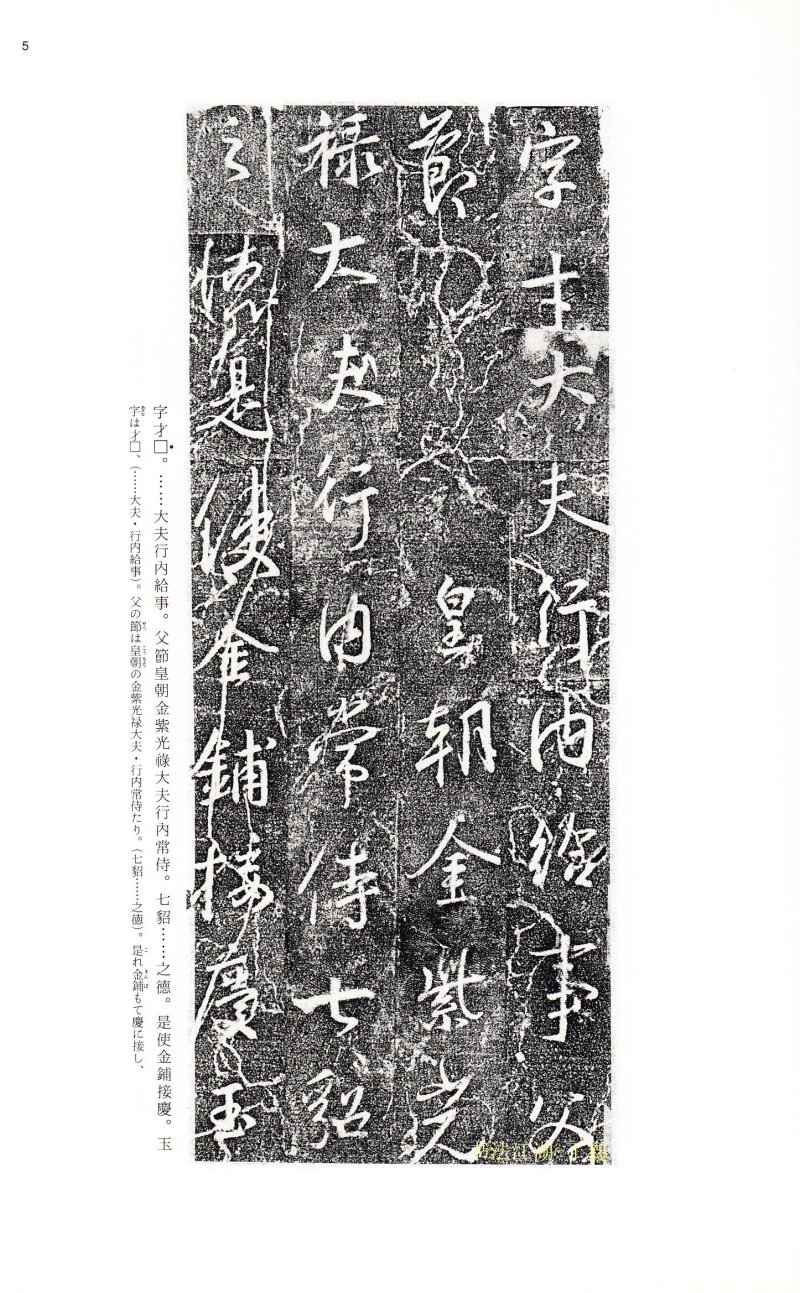 5
字才大夫行内給事父
節皇朝金紫光
禄大夫行内常侍七貂
之德是使金鋪接慶玉
字才□。……大夫行內給事。父節皇朝金紫光祿大夫行內常侍。七貂……之德。是使金鋪接慶。玉
字は才□、(……大夫・行内給事)。父の節は皇朝の金紫光禄大夫・行内常侍たり。(七貂……之徳)。是れ金鋪もて慶に接し、